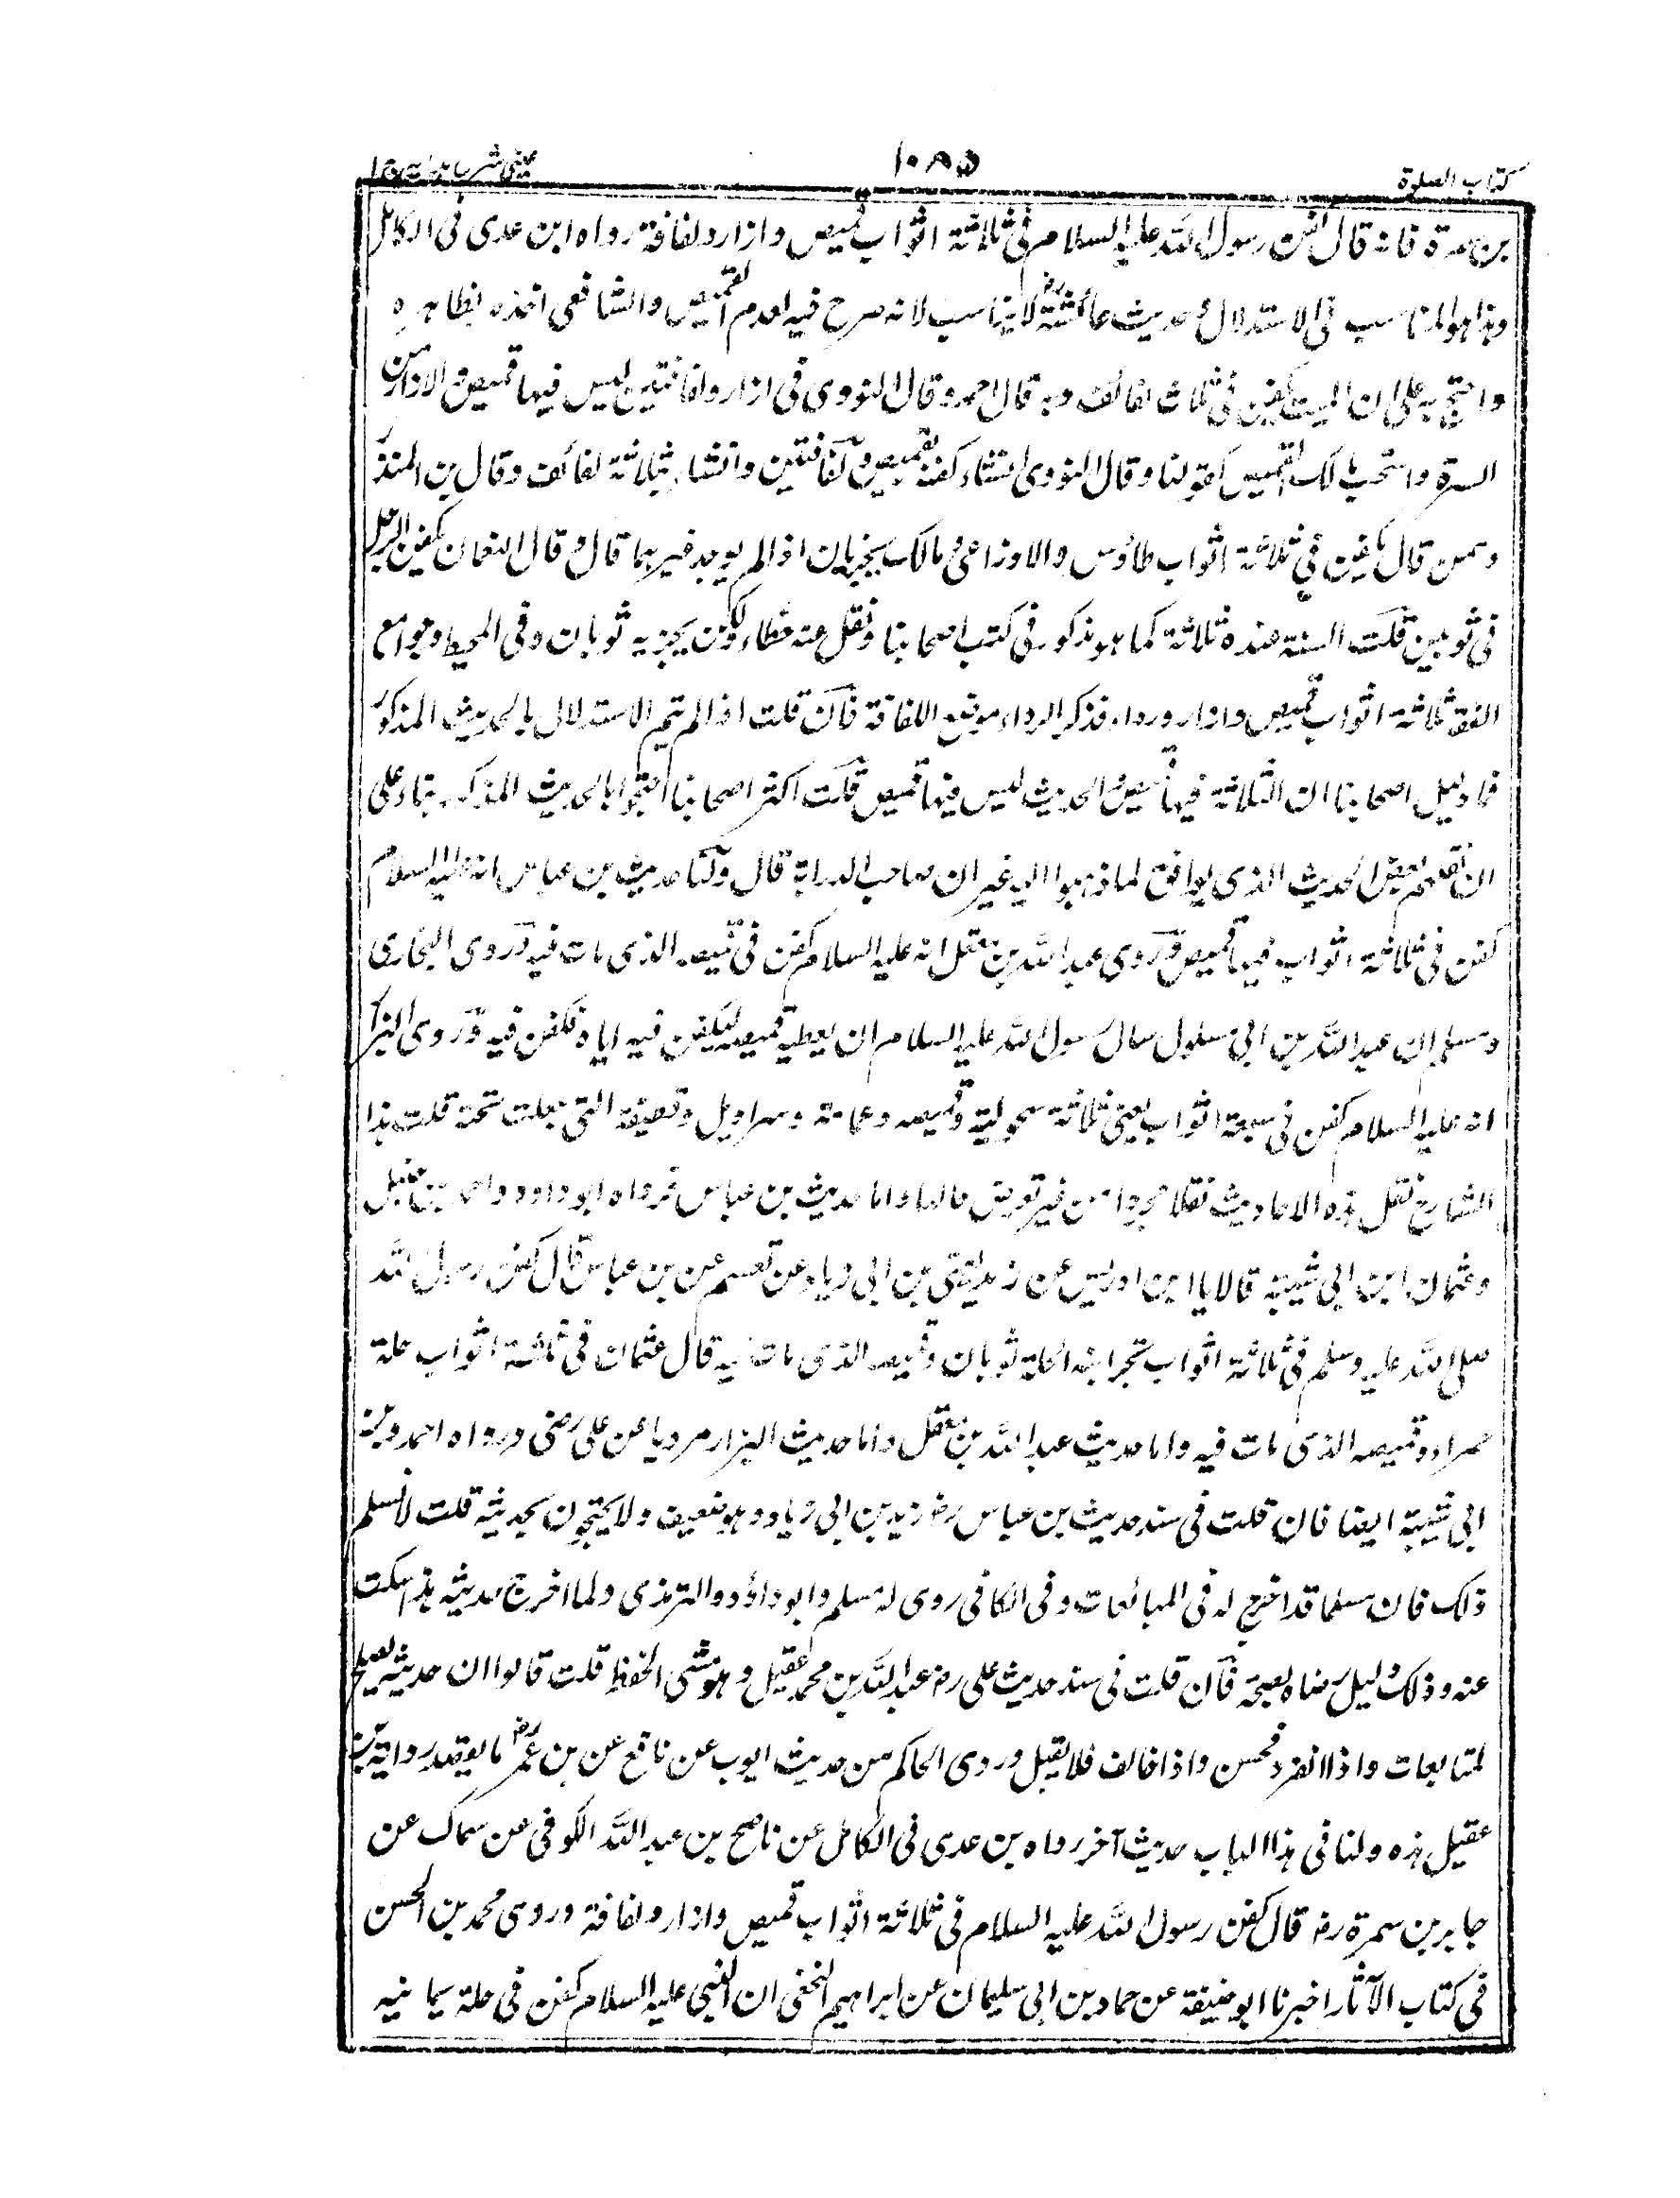 كتاب الصلوة
١٠٨٥
عينى شرح هداية ج ١
بن سمرة فانه قال كفن رسول الله عليه السلام فى ثلاثة اثواب قميص وازار ولفافة رواه ابن عدى فى الكامل
وهذا هو المناسب فى الاستدلال وحديث عائشة رض لا يناسب لانه صرح فيه لعدم القميص والشافعى اخذه بظاهره
واحتج به على ان الميت يكفن فى ثلاث لفائف وبه قال احمد وقال النووى فى ازار ولفافتين ليس فيها قميص والازار من
السرة واستحب مالك القميص كقولنا وقال النووى ان شاء كفنه بقميص ولفافتين وان شاء بثلاثة لفائف وقال بن المنذر
وممن قال يكفن فى ثلاثة اثواب طاؤس والاوزاعى ومالك يجزيان اذا لم يوجد غيرهما قال وقال النعمان يكفن الرجل
فى ثوبين قلت السنة عنده ثلاثة كما هو مذكور فى كتب اصحابنا ونقل عنه خطاء ولكن يجزيه ثوبان وفى المحيط وجوامع
الفقه ثلاثة اثواب قميص وازار ورداء فذكر الرداء موضع اللفافة فان قلت اذا لم يتم الاستدلال بالحديث المذكور
فما دليل اصحابنا ان الثلاثة فيها قميص الحديث ليس فيها قميص قلت اكثر اصحابنا احتجوا بالحديث المذكور بناء على
ان نقلهم بعض الحديث الذى يوافق لما ذهبوا اليه غير ان صاحب الدراية قال ولنا حديث بن عباس انه عليه السلام
كفن فى ثلاثة اثواب فيها قميص وروى عبد الله بن مغفل انه عليه السلام كفن فى قميصه الذى مات فيه وروى البخارى
ومسلم ان عبد الله بن ابى سلول سال رسول الله عليه السلام ان يعطيه قميصه ليكفن فيه اياه فكفن فيه وروى البزار
انه عليه السلام كفن فى سبعة اثواب يعنى ثلاثة سحولية وقميصه وعمامة وسراويل وقطيفة التى جعلت تحته قلت هذا
الشارح نقل هذه الاحاديث نقلا مجردا من غير تعرض حالها واما حديث بن عباس فرواه ابو داود واحمد بن حنبل
وعثمان ابن ابى شيبة قالا نا ابن ادريس عن زيد يعنى بن ابى زياد عن مقسم عن بن عباس قال كفن رسول الله
صلى الله عليه وسلم فى ثلاثة اثواب نجرانية الحلة ثوبان وقميصه الذى مات فيه قال عثمان فى ثلاثة اثواب حلة
حمراء وقميصه الذى مات فيه واما حديث عبد الله بن مغفل واما حديث البزار مرويا عن على رضى ورواه احمد وبن
ابى شيبة ايضا فان قلت فى سند حديث بن عباس رض زيد بن ابى زياد وهو ضعيف ولا يحتجون بحديثه قلت لا نسلم
ذلك فان مسلما قد اخرج له فى المبائعات وفى الكافى روى له مسلم وابو داؤد والترمذى ولما اخرج حديثه هذا سكت
عنه وذلك دليل رضاه بصحته فان قلت فى سند حديث على رض عبد الله بن محمد عقيل وهو سئ الحفظ قلت قالوا ان حديثه يصلح
لمتابعات واذا انفرد فحسن واذا خالف فلا يقبل وروى الحاكم من حديث ايوب عن نافع عن بن عمر رض ما يعضد رواية بن
عقيل هذه ولنا فى هذا الباب حديث آخر رواه بن عدى فى الكامل عن ناصح بن عبد الله الكوفى عن سماك عن
جابر بن سمرة رض قال كفن رسول الله عليه السلام فى ثلاثة اثواب قميص وازار ولفافة وروى محمد بن الحسن
فى كتاب الآثار اخبرنا ابو حنيفة عن حماد بن ابى سليمان عن ابراهيم النخعى ان النبى عليه السلام كفن فى حلة يمانيه